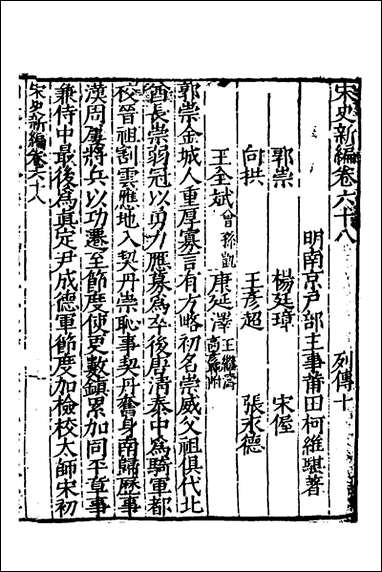 宋史新編卷六十八　列傳十
明南京戶部主事莆田柯維騏著
郭崇　楊廷璋　宋偓
向拱　王彥超　張永德
王全斌曾孫凱　康延澤王繼濤高彥暉附
郭崇金城人重厚寡言有方略初名崇威父祖俱代北
酋長崇弱冠以勇力應募為卒後唐清泰中為騎軍都
校晉祖割雲應地入契丹崇恥事契丹奮身南歸歷事
漢周屢將兵以功遷至節度使更數鎮累加同平章事
兼侍中最後為真定尹成德軍節度加檢校太師宋初
宋史新編卷六十八